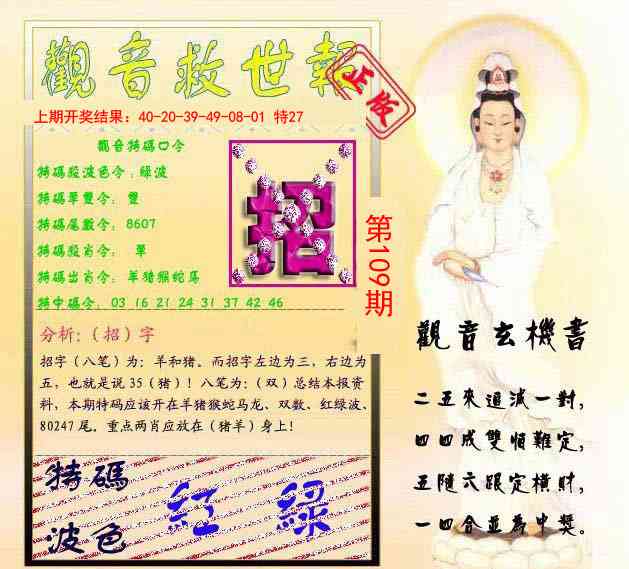 觀音救世報
正版
上期开奖结果：40-20-39-49-08-01 特27
觀音特碼口令
特碼殺波色令：绿波
特碼單雙令： 雙
特碼尾數令：8607
特碼殺肖令： 單
特碼出肖令：羊猪猴蛇马
特中碼令：03 16 21 24 31 37 42 46
招
第109期
分析：（招）字
招字（八笔）为：羊和猪。而招字左边为三，右边为
五，也就是说35（猪）！八笔为：（双）总结本报资
料，本期特码应该开在羊猪猴蛇马龙、双数、红绿波、
80247尾。重点两肖应放在（猪羊）身上！
特碼
波色
红 綠
觀音玄機書
二五來通减一對，
四四成雙恒難定，
五隨六跟定橫財，
一四合並為中獎。